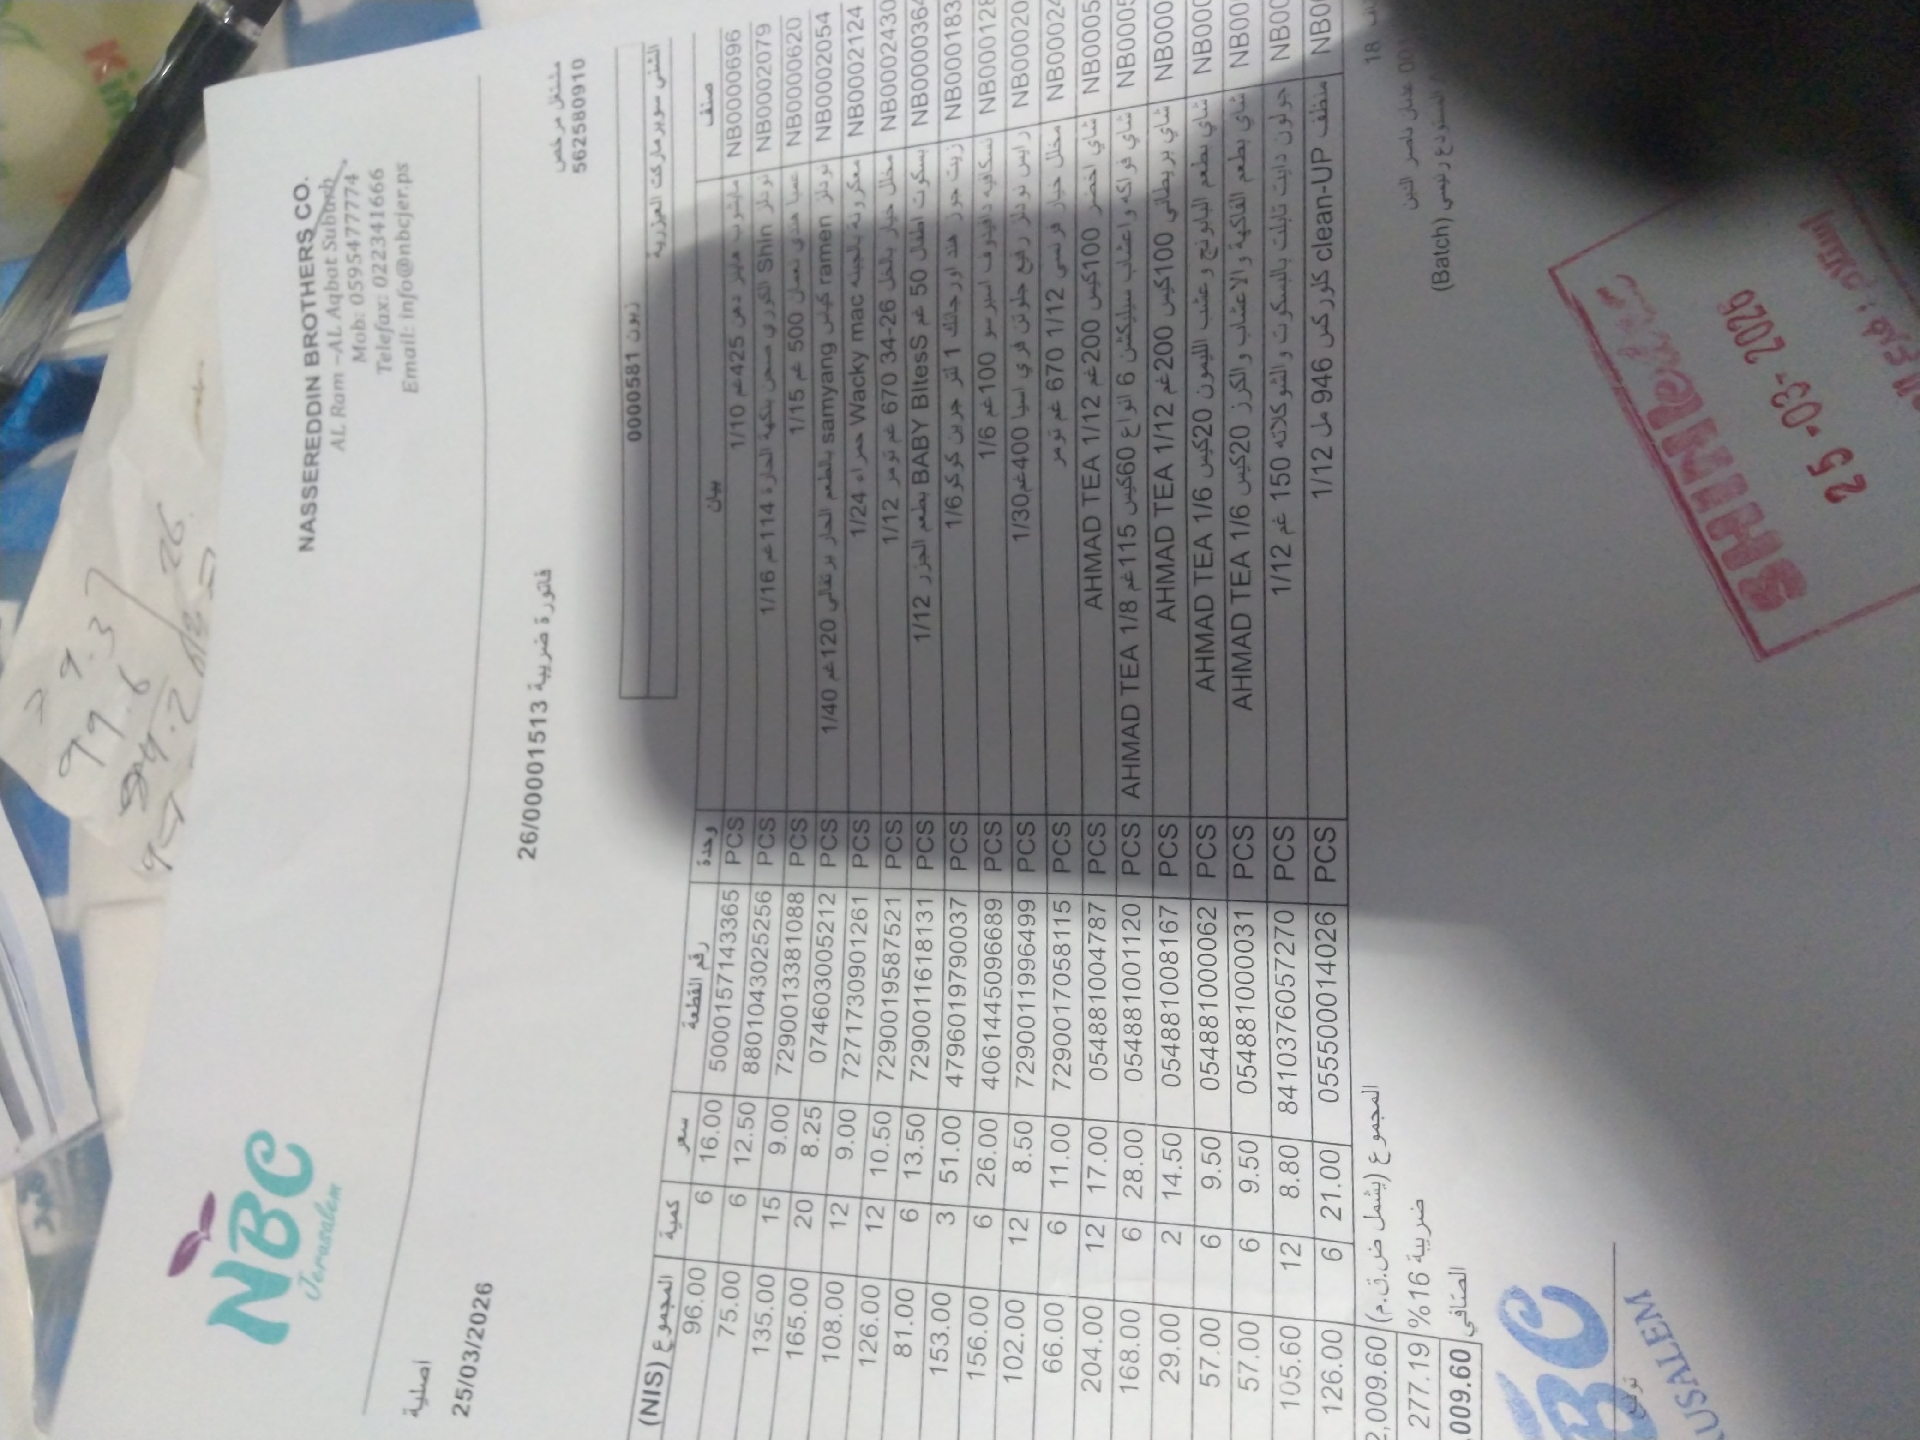 NBC
Jerusalem
NASSEREDDIN BROTHERS CO.
AL Ram –AL Aqbat Suburb
Mob: 0595477774
Telefax: 022341666
Email: info@nbcjer.ps
اصلية
25/03/2026
مشتغل مرخص
562580910
فاتورة ضريبية 26/00001513
زبون 0000581
الشني سوبر ماركت العيزرية
صنف بيان وحدة رقم القطعة سعر كمية المجموع (NIS)
NB0000696 425غم 1/10 PCS 5000157143365 16.00 6 96.00
NB0002079 نودلز Shin الكوري صحن بنكهة الحارة 114غم 1/16 PCS 8801043025256 12.50 6 75.00
NB0000620 500 غم 1/15 PCS 7290013381088 9.00 15 135.00
NB0002054 نودلز ramen كيس samyang بالطعم الحار برتقالي 120غم 1/40 PCS 074603005212 8.25 20 165.00
NB0002124 معكرونة بالجبنه Wacky mac حمراء 1/24 PCS 7271730901261 9.00 12 108.00
NB0002430 مخلل خيار بالخل 26-34 670 غم تومر 1/12 PCS 7290019587521 10.50 12 126.00
NB0000364 بسكوت اطفال 50 غم BABY BItesS بطعم الجزر 1/12 PCS 7290011618131 13.50 6 81.00
NB000183 زيت جوز هند اورجانك 1 لتر جرين كوكو 1/6 PCS 4796019790037 51.00 3 153.00
NB000128 نسكافيه دافيدوف اسبرسو 100غم 1/6 PCS 4061445096689 26.00 6 156.00
NB00020 رايس نودلز رفيع جلوتن فري اسيا 400غم 1/30 PCS 7290011996499 8.50 12 102.00
NB00024 مخلل خيار فرنسي 1/12 670 غم تومر PCS 7290017058115 11.00 6 66.00
NB0005 شاي اخضر 100كيس 200غم AHMAD TEA 1/12 PCS 054881004787 17.00 12 204.00
NB0005 شاي فواكه واعشاب سيليكشن 6 انواع 60كيس 115غم AHMAD TEA 1/8 PCS 054881001120 28.00 6 168.00
NB000 شاي بريطاني 100كيس 200غم AHMAD TEA 1/12 PCS 054881008167 14.50 2 29.00
NB000 شاي بطعم البابونج وعشب الليمون 20كيس AHMAD TEA 1/6 PCS 054881000062 9.50 6 57.00
NB00 شاي بطعم الفاكهة والاعشاب والكرز 20كيس AHMAD TEA 1/6 PCS 054881000031 9.50 6 57.00
NB00 جولون دايت تابلت بالبسكوت والشوكلاته 150 غم 1/12 PCS 8410376057270 8.80 12 105.60
NB0 منظف clean-UP كلوركس 946 مل 1/12 PCS 055500014026 21.00 6 126.00
المجموع (يشمل ض.ق.م) 2,009.60
ضريبة 16% 277.19
الصافي ,009.60
18
(Batch)
25-03-2026
BC
USALEM